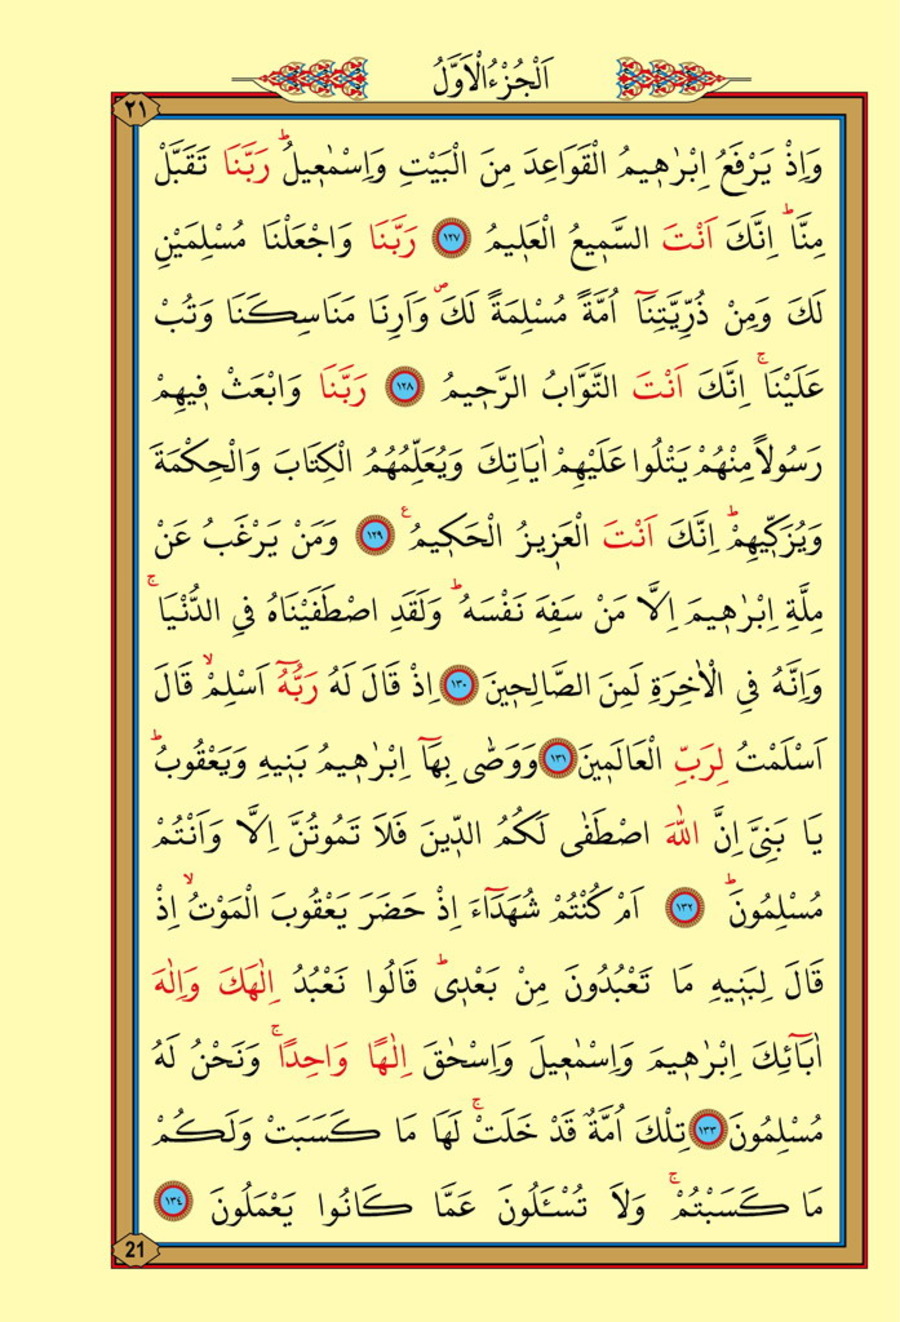 اَلْجُزْءُ الْاَوَّلُ
٢١
وَاِذْ يَرْفَعُ اِبْرٰه۪يمُ الْقَوَاعِدَ مِنَ الْبَيْتِ وَاِسْمٰع۪يلُۜ رَبَّنَا تَقَبَّلْ
مِنَّاۜ اِنَّكَ اَنْتَ السَّم۪يعُ الْعَل۪يمُ ١٢٧ رَبَّنَا وَاجْعَلْنَا مُسْلِمَيْنِ
لَكَ وَمِنْ ذُرِّيَّتِنَٓا اُمَّةً مُسْلِمَةً لَكَۖ وَاَرِنَا مَنَاسِكَنَا وَتُبْ
عَلَيْنَاۚ اِنَّكَ اَنْتَ التَّوَّابُ الرَّح۪يمُ ١٢٨ رَبَّنَا وَابْعَثْ ف۪يهِمْ
رَسُولاً مِنْهُمْ يَتْلُوا عَلَيْهِمْ اٰيَاتِكَ وَيُعَلِّمُهُمُ الْكِتَابَ وَالْحِكْمَةَ
وَيُزَكّ۪يهِمْۜ اِنَّكَ اَنْتَ الْعَز۪يزُ الْحَك۪يمُ۟ ١٢٩ وَمَنْ يَرْغَبُ عَنْ
مِلَّةِ اِبْرٰه۪يمَ اِلَّا مَنْ سَفِهَ نَفْسَهُۜ وَلَقَدِ اصْطَفَيْنَاهُ فِي الدُّنْيَاۚ
وَاِنَّهُ فِي الْاٰخِرَةِ لَمِنَ الصَّالِح۪ينَ ١٣٠ اِذْ قَالَ لَهُ رَبُّهُٓ اَسْلِمْۙ قَالَ
اَسْلَمْتُ لِرَبِّ الْعَالَم۪ينَ ١٣١ وَوَصّٰى بِهَٓا اِبْرٰه۪يمُ بَن۪يهِ وَيَعْقُوبُۜ
يَا بَنِيَّ اِنَّ اللّٰهَ اصْطَفٰى لَكُمُ الدّ۪ينَ فَلَا تَمُوتُنَّ اِلَّا وَاَنْتُمْ
مُسْلِمُونَۜ ١٣٢ اَمْ كُنْتُمْ شُهَدَٓاءَ اِذْ حَضَرَ يَعْقُوبَ الْمَوْتُۙ اِذْ
قَالَ لِبَن۪يهِ مَا تَعْبُدُونَ مِنْ بَعْد۪يۜ قَالُوا نَعْبُدُ اِلٰهَكَ وَاِلٰهَ
اٰبَٓائِكَ اِبْرٰه۪يمَ وَاِسْمٰع۪يلَ وَاِسْحٰقَ اِلٰهًا وَاحِدًاۚ وَنَحْنُ لَهُ
مُسْلِمُونَ ١٣٣ تِلْكَ اُمَّةٌ قَدْ خَلَتْۚ لَهَا مَا كَسَبَتْ وَلَكُمْ
مَا كَسَبْتُمْۚ وَلَا تُسْـَٔلُونَ عَمَّا كَانُوا يَعْمَلُونَ ١٣٤
21